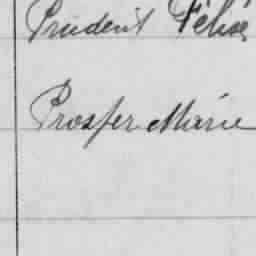 Prudent Félicie
Prosper Marie